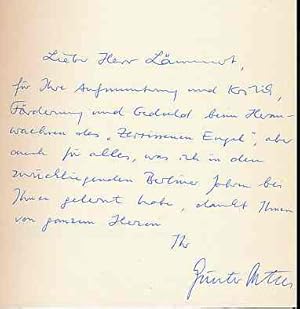 Liebe Herr Lämmert,
für Ihre Aufmunterung und Kritik,
Förderung und Geduld beim Heran-
wachsen des „Zerrissenen Engel“, aber
auch für alles, was ich in den
zurückliegenden Berliner Jahren bei
Ihnen gelernt habe, dankt Ihnen
von ganzem Herzen
Ihr
Günter